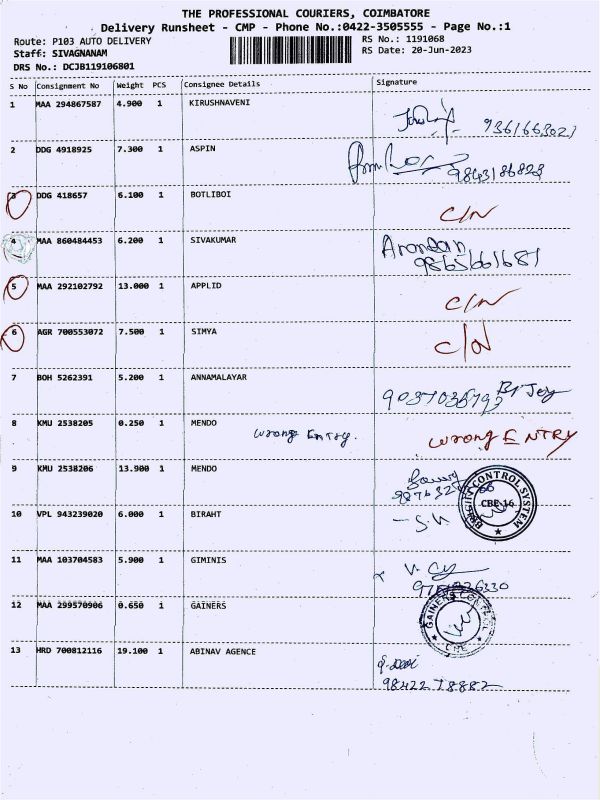 THE PROFESSIONAL COURIERS, COIMBATORE
Delivery Runsheet - CMP - Phone No.:0422-3505555 - Page No.:1
Route: P103 AUTO DELIVERY
RS No.: 1191068
Staff: SIVAGNANAM
RS Date: 20-Jun-2023
DRS No.: DCJB119106801
S No Consignment No Weight PCS Consignee Details Signature
1 MAA 294867587 4.900 1 KIRUSHNAVENI
2 DDG 4918925 7.300 1 ASPIN
9843186828
3 DDG 418657 6.100 1 BOTLIBOI
C/N
4 MAA 860484453 6.200 1 SIVAKUMAR
5 MAA 292102792 13.000 1 APPLID
C/N
6 AGR 700553072 7.500 1 SIMYA
C/N
7 BOH 5262391 5.200 1 ANNAMALAYAR
8 KMU 2538205 0.250 1 MENDO
wrong Entry. wrong ENTRY
9 KMU 2538206 13.900 1 MENDO
CONTROL SYSTEM
CBE-16
10 VPL 943239020 6.000 1 BIRAHT
11 MAA 103704583 5.900 1 GIMINIS
12 MAA 299570906 0.650 1 GAINERS
GAINERS
CBE
13 HRD 700812116 19.100 1 ABINAV AGENCE
98422 78882